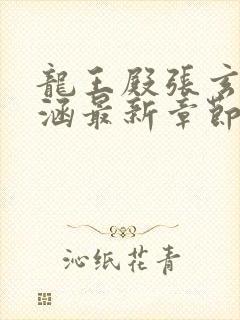 龍王殿張玄
涵最新章節
沁纸花青